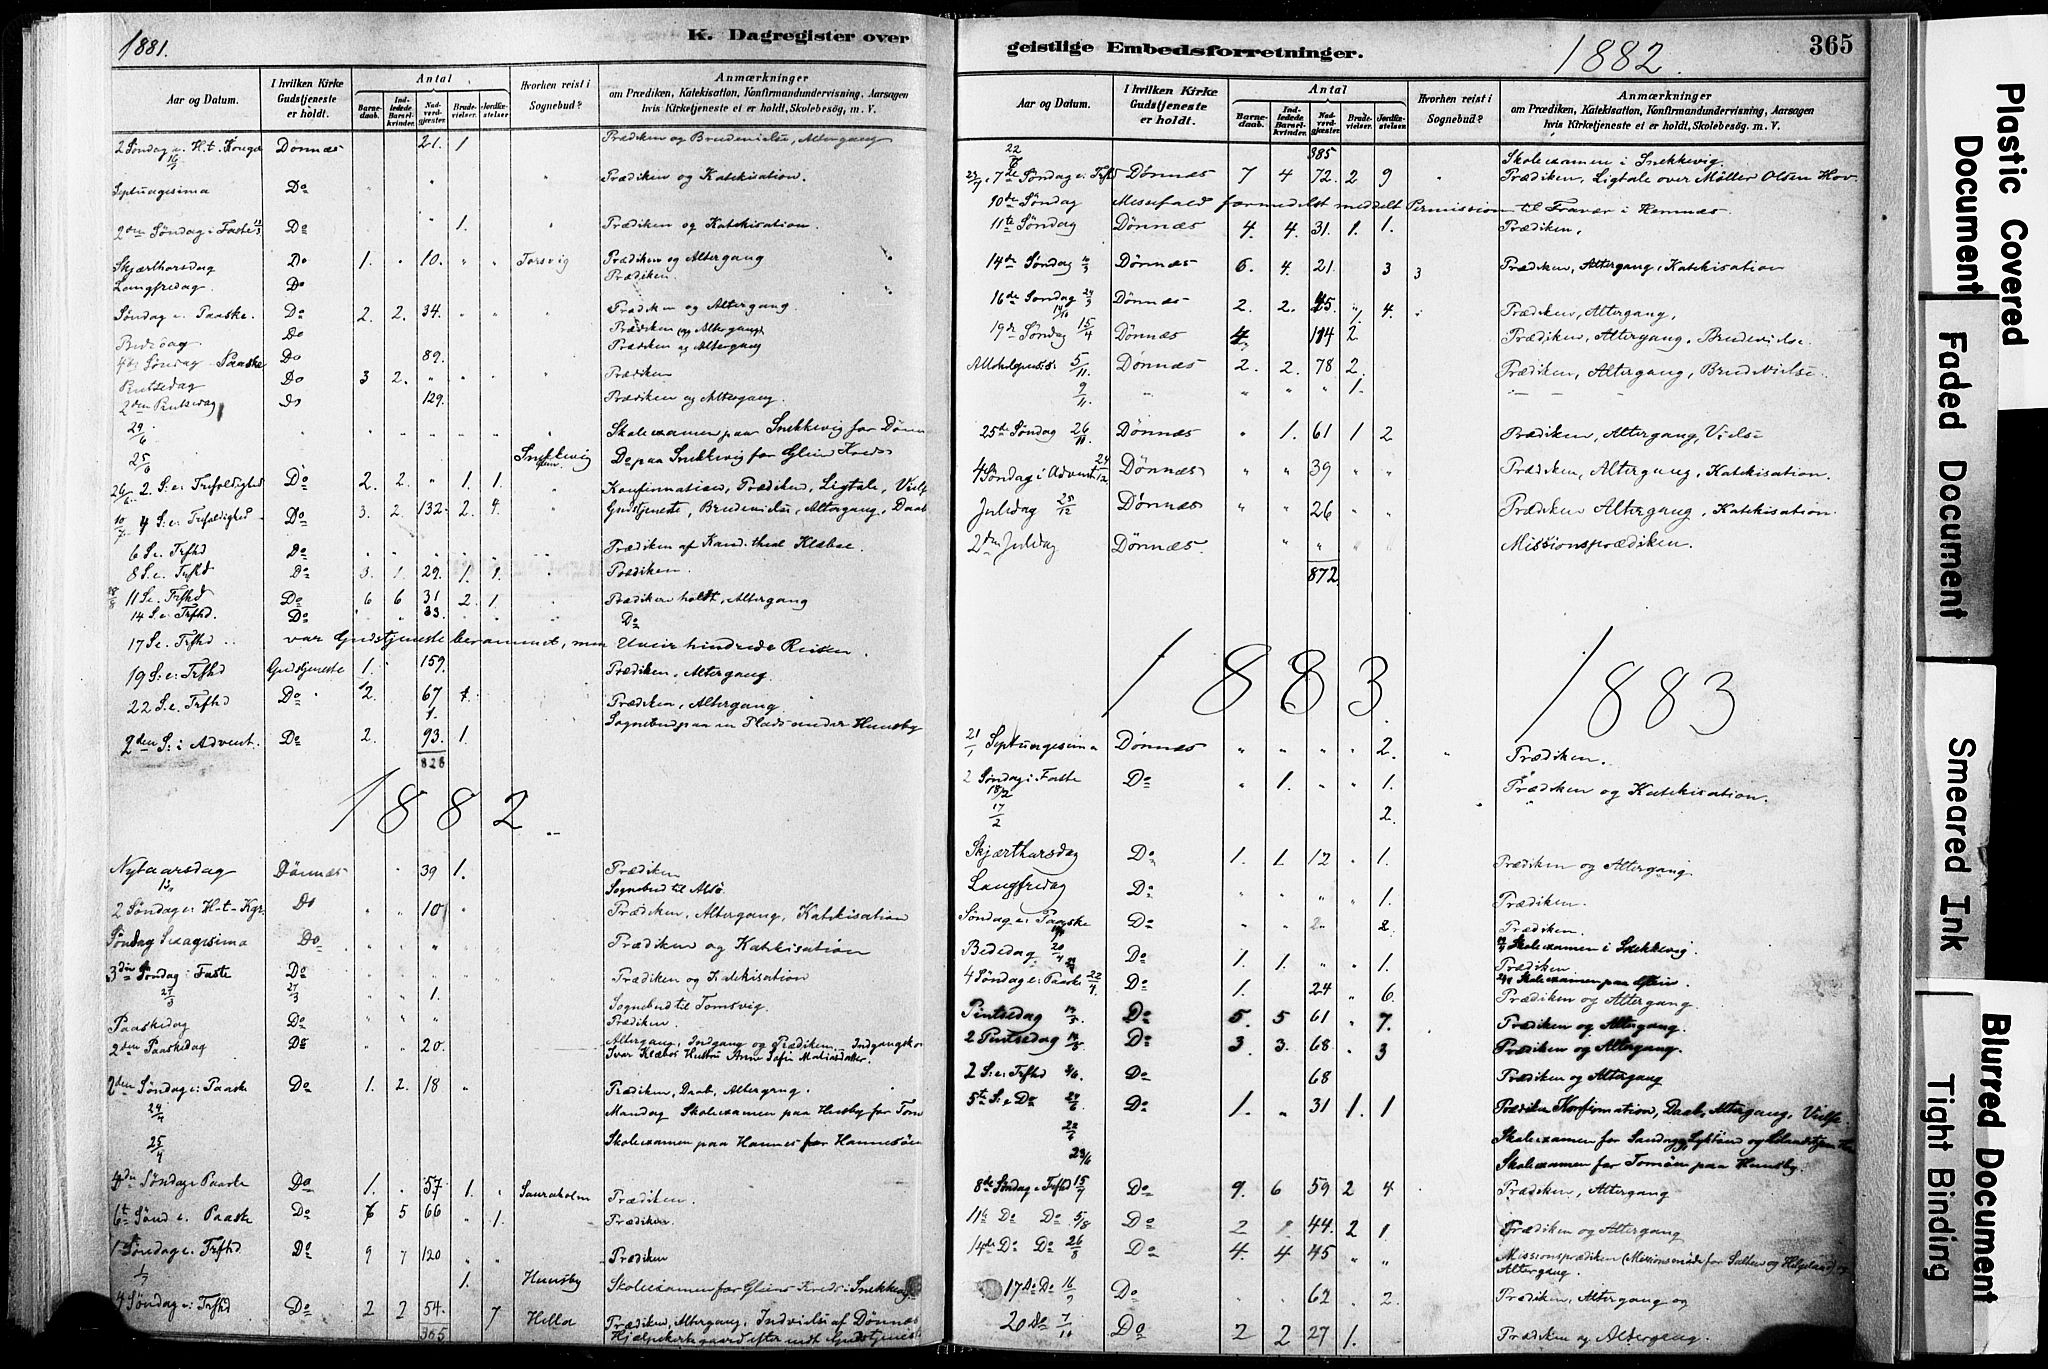 1881.
K. Dagregister over
Aar og Datum.
I hvilken Kirke Gudstjeneste er holdt.
Antal
Barnedaab.
Indledede Barselkvinder.
Nadverdgjæster.
Brudevielser.
Jordfæstelser
Hvorhen reist i Sognebud?
Anmærkninger
om Prædiken, Katekisation, Konfirmandundervisning, Aarsagen
hvis Kirketjeneste ei er holdt, Skolebesög, m. V.
2 Søndag e. H. t. Konger Dønnæs 21. 1 Prædiken og Brudevielse, Altergang
16/1
Septuagesima Do " " " Prædiken og Katekisation.
2den Søndag i Faste 13/3 Do " " 1. Prædiken og Katekisation.
Skjærthorsdag Do 1. " 10. " " Torsvig Prædiken og Altergang
Langfredag Do Prædiken.
Søndag e. Paaske. Do 2. 2. 34. " " Prædiken og Altergang.
Bededag Do Prædiken (og Altergang)
4de Søndag Paaske Do 89. Prædiken og Altergang
Pintsedag Do 3 2. " " Prædiken
2den Pintsedag Do 129. Prædiken og Altergang.
29/6 Skoleexamen paa Snekkevig for Dønn
25/6 Snekkevig Do paa Snekkevig for Glein Kreds
26/6 2. S. e. Trefoldighed Do 2. 2. " 1. 1. Konfirmation, Prædiken, Ligtale, Vielse
10/7 4 S. e. Trefoldighed Do 3. 2 132 2 4. Gudstjeneste, Brudevielse, Altergang, Daab
6 S. e. Trfhd Do Prædiken af Kand. theol. Klæboe.
8 S. e. Trfhd Do 3. 1. 29. 1. 1. Prædiken.
28/8 11 S. e. Trfhd Do 6 6 31 2. 1. Prædiken holdt, Altergang
14 S. e. Trfhd. Do 33. Do
17 S. e. Trfhd var Gudstjeneste berammet, men Uveir hindrede Reisen.
19 S. e. Trfhd Gudstjeneste 1. 159. Prædiken, Altergang.
22 S. e. Trfhd Do 2. 67 1. Prædiken, Altergang.
1. Sognebud paa en Plads under Huusby
2den S. i Advent. Do 2. 93. 1.
828
1882
Nytaarsdag Dønnæs 39 1. Prædiken
Sognebud til Alsø.
2 Søndag e. H. t. Kgr Do " " 10 Prædiken, Altergang, Katekisation
Søndag Sexagesima Do " Prædiken og Katekisation
3die Søndag i Faste Do Prædiken og Katekisation
27/3 27/3 1. Sognebud til Tomsvig.
Paaskedag Do " " " Prædiken.
2den Paaskedag Do 20. Altergang, Indgang og Prædiken. Indgangskone
Ivar Klæboes Hustru Anne Sofie Mathiasdatter.
2den Søndag e. Paaske Do 1. 2. 18 " Prædiken, Daab, Altergang.
24/4 Mandag Skoleexamen paa Husby for Tom
25/4 Skoleexamen paa Hannes for Hannesøen
4de Søndag e. Paaske Do 1. " 57. 1. " Sauraholm Prædiken.
6te Sønd e. Paaske Do 6 5 66 " 1. Prædiken.
1 Søndag e. Trfhd Do 9 7 120 " " Prædiken
1/7 1. Huusby Skoleexamen for Gleins Kreds i Snekkevig
4 Søndag e. Trfhd Do 2 2 54. 7 Hella Prædiken, Altergang, Indvielse af Dønnes
365 Hjælpekirkegaard efter endt Gudstjeneste
geistlige Embedsforretninger.
1882.
365
Aar og Datum.
I hvilken Kirke Gudstjeneste er holdt.
Antal
Barnedaab.
Indledede Barselkvinder.
Nadverdgjæster.
Brudevielser.
Jordfæstelser
Hvorhen reist i Sognebud?
Anmærkninger
om Prædiken, Katekisation, Konfirmandundervisning, Aarsagen
hvis Kirketjeneste ei er holdt, Skolebesög, m. V.
22/6 385 Skoleexamen i Snekkevig.
23/7 7de Søndag e. Trfhd Dønnæs 7 4 72. 2 9 Prædiken, Ligtale over Møller Olsen Hov.
10de Søndag Messefald formedelst meddelt Permission til Fravær i Hemnæs.
11te Søndag Dønnæs 4. 4. 31. 1. 1. Prædiken,
14de Søndag Dønnæs 6. 4. 21 3 3 Prædiken, Altergang, Katekisation
16de Søndag 24/9 Dønnæs 2. 2. " 4. Prædiken, Altergang,
19de Søndag Dønnæs 4 114 2. Prædiken, Altergang, Brudevielse.
Allehelgensd. 5/11. Dønnæs 2. 2. 78 2. Prædiken, Altergang, Brudevielse.
9/11. " " " " 1. – – –
25de Søndag 26/11. Dønnæs " 1. 61 1 2 Prædiken, Altergang, Vielse
4 Søndag i Advent 24/12 Dønnæs " " 39 " Prædiken, Altergang, Katekisation.
Juledag 25/12 Dønnæs " " 26 " " Prædiken Altergang, Katekisation.
2den Juledag Dønnæs. " " Missionsprædiken.
872
1883 1883
21/1 Septuagesima Dønnæs " " " " 2. Prædiken.
2 Søndag i Faste Do " 1. " " 1. Prædiken og Katekisation.
18/2
17/2 2.
Skjærthorsdag Do 1. 1 12 " 1. Prædiken og Altergang
Langfredag Do " " " " 1 Prædiken.
Søndag e. Paaske Do 2 2. Prædiken.
Skoleexamen i Snekkevig
Bededag 20/4 Do 1. 1. " " 1. Prædiken
Skoleexamen paa Glein.
4 Søndag e. Paaske 22/4. Do 1. 24 " 6. Prædiken og Altergang
Pintsedag 13/5. Do 5. 5 61 " 7. Prædiken og Altergang.
2 Pintsedag 14/5 Do 3 3. 68 " 3 Prædiken og Altergang.
2 S. e. Trfhd Do 68 Prædiken og Altergang
5te S. e. Do 24/6 Do 1. " 31 1. 1 Prædiken, Konfirmation, Daab, Altergang, Vielse.
22/6 Skoleexamen for
23/6 Skoleexamen for Tomøen paa Huusby.
8de Søndag e. Trfhd 15/7 Do 9. 6 59 2 4 Prædiken, Altergang
11te Do Do 5/8 Do 2 44. 2 1 Prædiken og Altergang
14de Do Do 26/8 Do 4. 4 45 " " Missionsprædiken (Missionsmøde for Salten og Helgeland) og
Altergang.
17 Do Do 16/9 Do 62 " 2. Prædiken, Altergang og
20 Do 7/10 Do 2 2 27 1. Prædiken og Altergang.
Plastic Covered Document
Faded Document
Smeared Ink
Blurred Document
Tight Binding